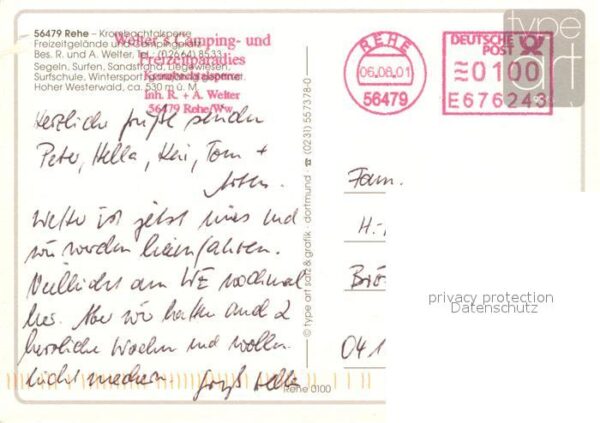 56479 Rehe - Krombachtalsperre
Freizeitgelände und Campingplatz
Bes. R. und A. Welter, Tel. (0 26 64) 85 33
Segeln, Surfen, Sandstrand, Liegewiesen,
Surfschule, Wintersport
Hoher Westerwald, ca. 530 m ü. M.
Welter's Camping- und
Freizeitparadies
Krombachtalsperre
Inh. R. + A. Welter
56479 Rehe/Ww.
REHE
06.08.01
56479
DEUTSCHE
POST
0100
E676243
type
art
Herzliche Grüße senden
Peter, Hella, Kai, Tom +
Wetter ist jetzt mies und
wir werden heimfahren.
Vielleicht am WE nochmal
her. Aber wir hatten auch 2
herrliche Wochen und wollen
nicht meckern. Gruß Hella
© type art satz & grafik · dortmund · ☎ (0231) 55 7378-0
Rehe 0100
Fam.
H.-
Brö
04 1
privacy protection
Datenschutz